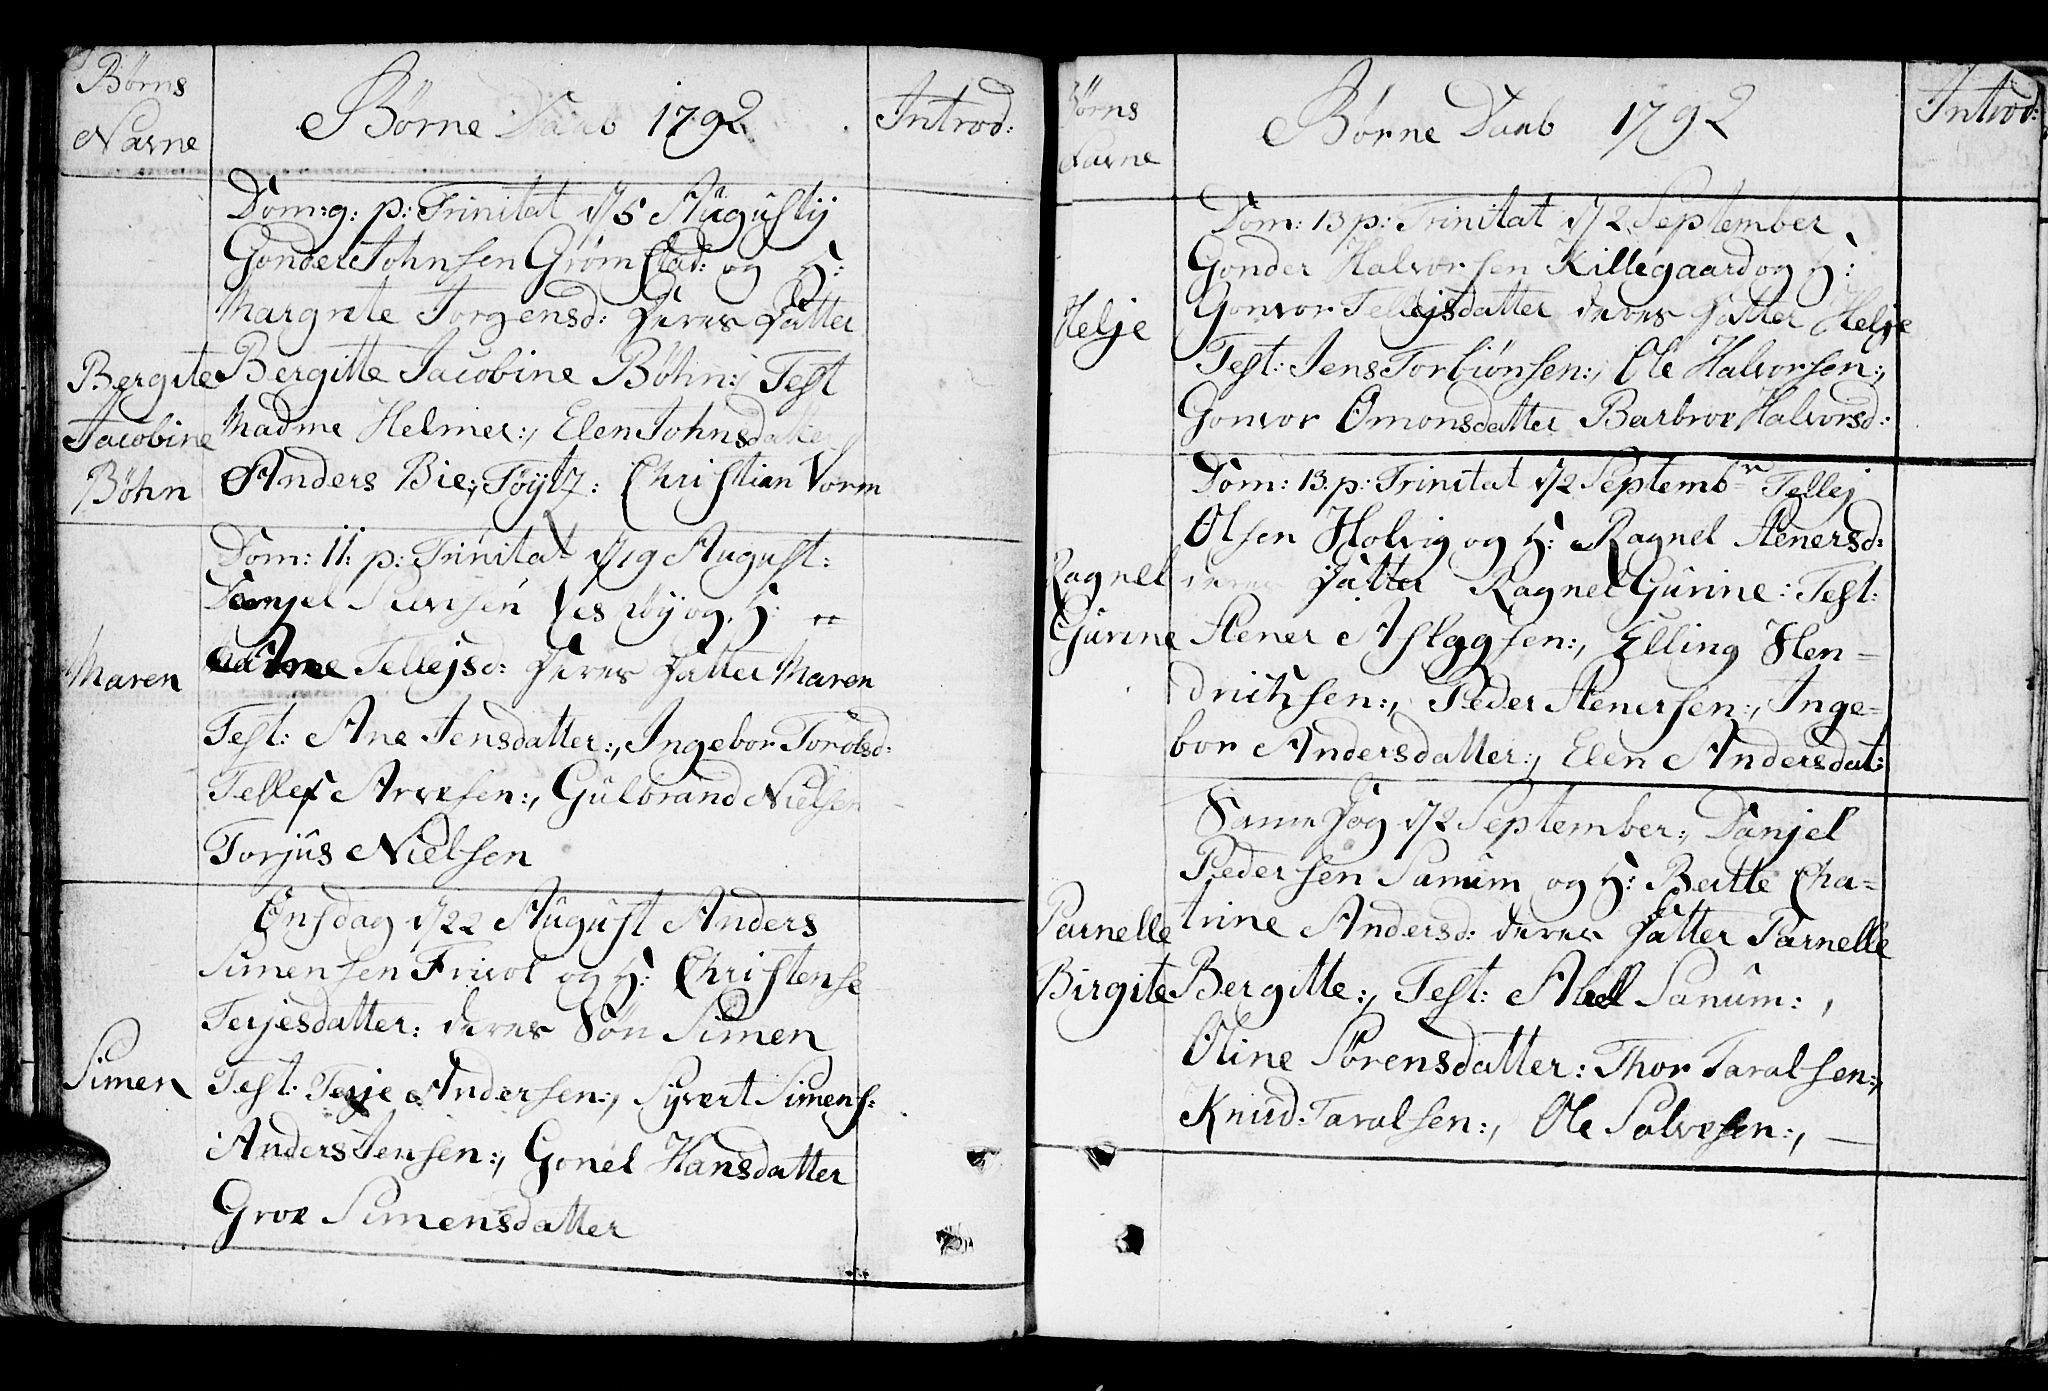 Børns
Navne
Børne Daab 1792
Introd:
Dom: 9: p: Trinitat d/5 Augustij
Gonder Johnsen Grømstad: og H:
Margrete Jorgensd: Deres Datter
Bergitte Jacobine Bøhn:, Test
Madme Helmer:, Elen Johnsdatter
Anders Bie:, Tøÿtz: Christian Vorm
Bergite
Jacobine
Bøhn
Dom: 11: p: Trinitat d/19 August:
Danjel og H:
Ane Tellejsd: Deres Datter Maren
Test: Ane Jensdatter:, Ingebor Torolsd:
Tellef Arvesen:, Gulbrand Nielsen
Torjus Nielsen
Maren
Onsdag d/22 August Anders
Simensen Frivol og H: Christense
Terjesdatter: deres Søn Simen
Test: Terje Andersen:, Syvert Simens:
Anders Jensen:, Gonel Hansdatter
Groe Simensdatter
Simen
Børns
Navne
Børne Daab 1792
Introd:
Dom: 13 p: Trinitat d/2 September
Gonder Halvorsen Killegaard og H:
Gonvor Tellejsdatter deres Datter Helje
Test: Jens Torbiønsen:, Ole Halvorsen:,
Gonvor Omonsdatter Barbroe Halvorsd:
Helje
Dom: 13. p: Trinitat d/2 Septembr Tellej
Olsen Holvig og H: Ragnel Stenersd:
deres Datter Ragnel Gurine: Test:
Stener Aslagsen:, Elling Hen-
drichsen:, Peder Stenersen:, Inge-
bor Andersdatter:, Elen Andersdat:
Ragnel
Gurine
Samme Dag d/2 September:, Danjel
Pedersen Sanum og H: Beatte Cha-
trine Andersd: deres Datter Parnelle
Bergitte:, Test: Abell Sanum:,
Oline Sørensdatter: Thor Taralsen:,
Knud Taralsen:, Ole Salvesen:,
Parnelle
Birgite